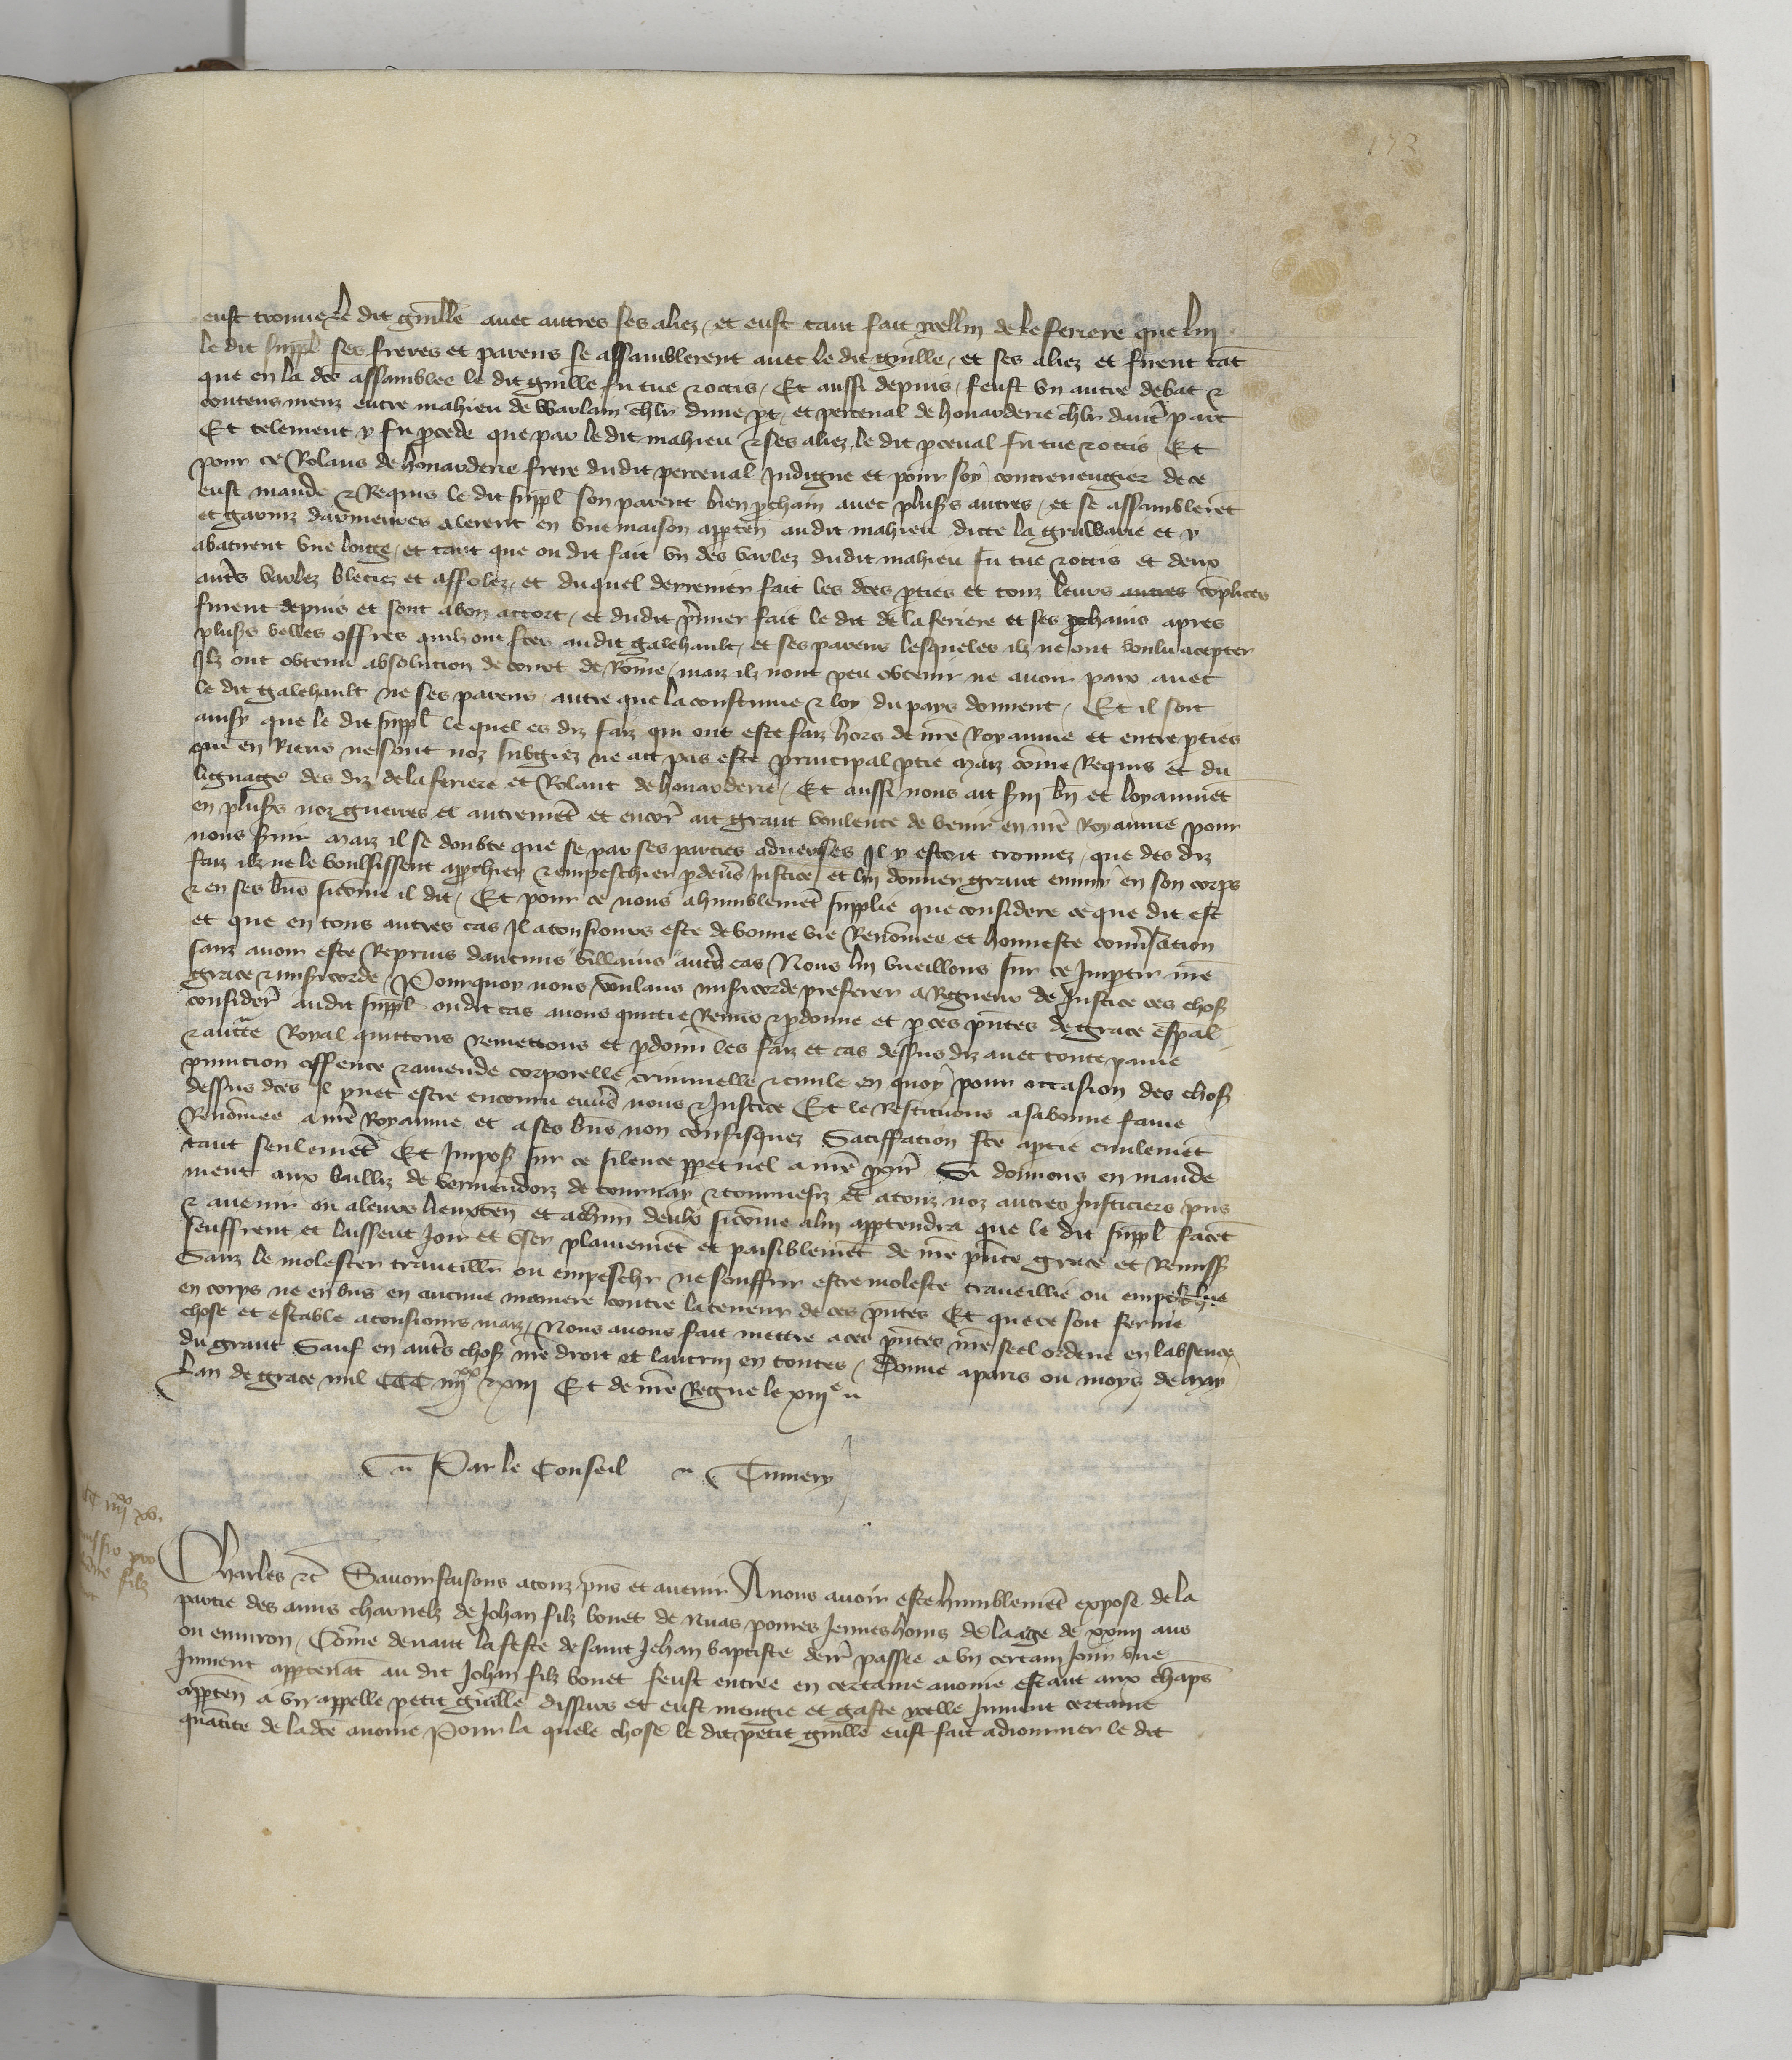 173
eust trouue le dit guille auec autres ses aliez / et eust tant fait ycellui de le feriere que lui
le dit suppl ses freres et parens se assamblerent auec le dit guille / et ses aliez et firent tat
que en la dce assamblee le dit guille fu tue & occis / Et aussi depuis / feust vn autre debat &
contens meuz entre mahieu de warlain chlr dune pt / et perceual de honarderie chlr daut part
Et telement y fu pcede que par le dit mahieu & ses aliez le dit pceual fu tue & occis Et
pour ce Rolans de honarderie frere dudit perceual Indigne et pour soy contreuengier de ce
eust mande & Requis le dit suppl son parent bien pchain auec pluss autres / et se assambleret
et garniz darmeures alerent en vne maison apparten audit mahieu dicte la gruwarie et y
abatirent vne loige / et tant que ou dit fait vn des varlez dudit mahieu fu tue & occis et deux
auts varlez bleciez et affolez / et duquel derrenier fait les dces pties et touz leurs autres coplices
furent depuis et sont a bon accort / et dudit pmier fait le dit de la feriere et ses pchains apres
pluss belles offres quilz ont fces audit galehault / et ses parens lesqueles ilz ne ont voulu accepter
Ilz ont obtenu absolucion de court de Rome / maiz ilz nont peu obtenir ne auoir paix auec
le dit galehault ne ses parens autre que la coustume & loy du pays donnent / Et il soit
ainsy que le dit suppl le quel es diz faiz qui ont este faiz hors de nre Royaume et entre pties
que en Riens ne sont noz subgiez ne ait pas este principal ptie maiz come Requis et du
lignage des diz de la feriere et Rolant de honarderie / Et aussi nous ait sui bn et loyaumet
en pluss noz guerres et autremet et encor ait grant voulente de venir en nre Royaume pour
nous suir maiz il se doubte que se par ses parties aduerses Il y estoit trouuez / que des diz
faiz ilz ne le voulsissent approchier & empeschier p deus Justice et lui donner grant ennuy en son corps
& en ses bns sicome il dit / Et pour ce nous a humblemet supplie que considere ce que dit est
et que en tous autres cas Il a tousiours este de bonne vie Renomee et honneste conusacion
sanz auoir este Reprins daucuns villains auts cas Nous lui vueillons sur ce Imptir nre
grace & misicorde / Pourquoy nous voulans misicorde preferer a Rigueur de Justice ces choss
consider audit suppl oudit cas auons quictie Remis & pdonne et p ces pntes de grace espal
& auctte Royal quittons Remettons et pdonn les faiz et cas dessus diz auec toute paine
punicion offence & amende corporelle criminelle & ciuile en quoy pour occasion des choss
dessus dces Il puet estre encouru enus nous & Justice Et le Restituons a sa bonne fame
Renomee a nre Royaume et a ses bns non confisquez Satiffacion fce a ptie ciuilemet
tant seulemet Et Imposs sur ce silence ppetuel a nre pcur Si donnons en mande
ment aux bailliz de vermendoiz de tournay & tournesiz et a touz noz autres Justiciers pns
& auenir ou a leurs lieuxten et a chun deulx sicome a lui apptendra que le dit suppl facet
seuffrent et laissent Joir et vser plainemet et paisiblemet de nre pnte grace et Remiss
Sanz le molester trauaillr ou empeschr ne souffrir estre moleste trauaillie ou empeschie
en corps ne en bns en aucune maniere contre la teneur de ces pntes Et que ce soit ferme
chose et estable a tousiours maiz / Nous auons fait mettre a ces pntes nre seel ordene en labsence
du grant Sauf en auts choss nre droit et lautrui en toutes / Donne a paris ou moys de may
Lan de grace mil CCC iiiixx & xiii Et de nre Regne le xiiie
Par le Conseil Tumery
CC iiiixx xv.
Charles &c Sauoir faisons a touz pns et auenir A nous auoir este humblemet expose de la
partie des amis charnelz de Johan filz bonet de Nuas poures Jeunes homs de laage de xxiiii ans
ou enuiron / Come deuant la feste de saint Jehan baptiste derr passee a vn certain Jour vne
Jument apptenat au dit Johan filz bonet feust entree en certaine auoine estant aux chaps
appten a vn appelle petit guille dissurs et eust mengie et gaste ycelle Jument certaine
quatite de la dce auoine Pour la quele chose le dit petit guille eust fait adiourner le dit